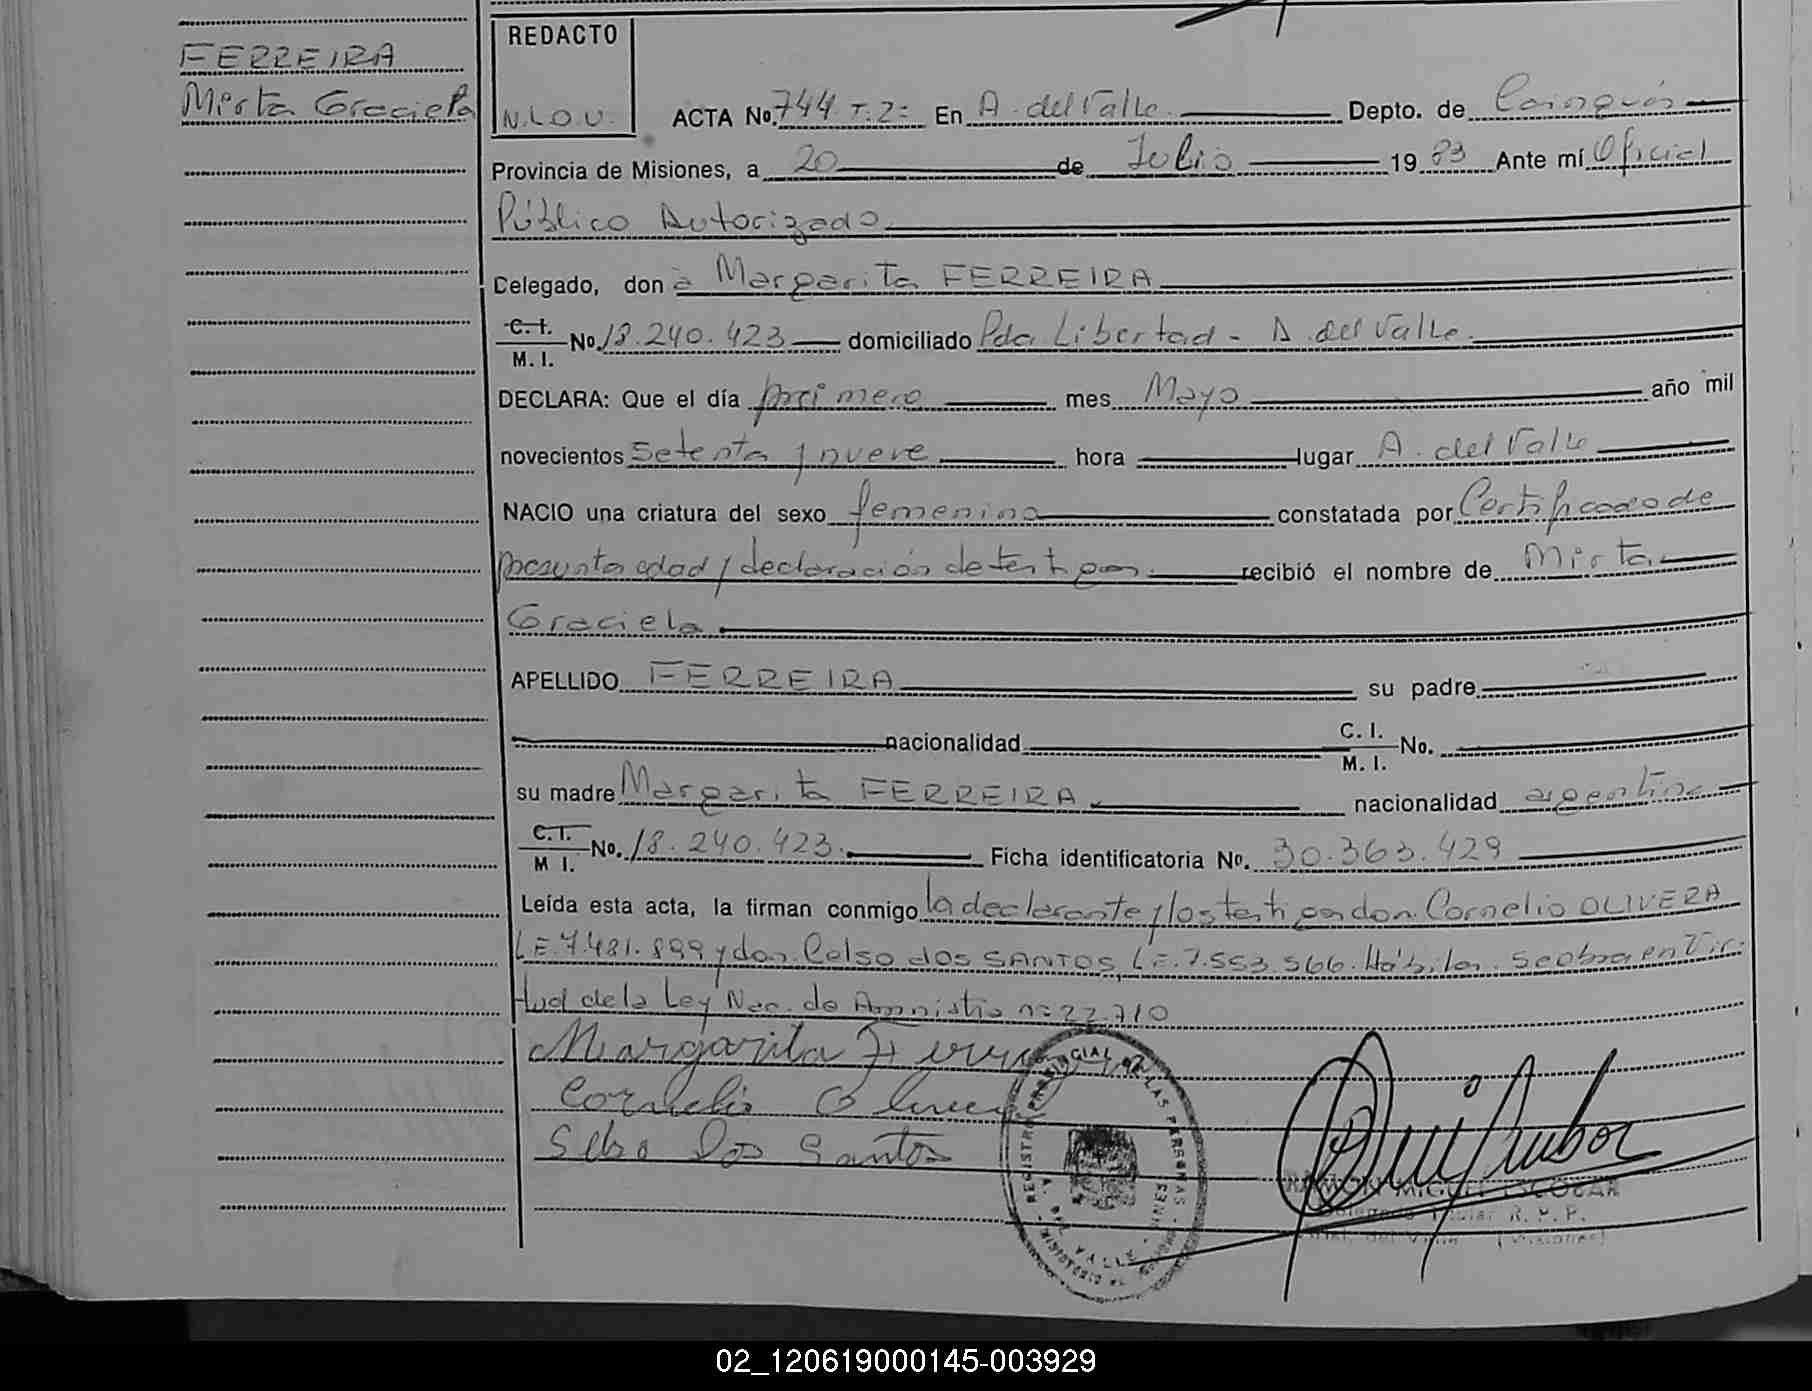 FERREIRA
Mirta Graciela
REDACTO
N.L.O.U.
ACTA No. 744 T:2: En A. del Valle Depto. de Cainguás
Provincia de Misiones, a 20 de Julio 19 83 Ante mí Oficial
Público Autorizado
Delegado, don a Margarita FERREIRA
C. I. M. I. No. 18.240.423 domiciliado Pda. Libertad - A. del Valle.
DECLARA: Que el día primero mes Mayo año mil
novecientos setenta y nueve hora lugar A. del Valle
NACIO una criatura del sexo femenino constatada por Certificado de
presunta edad y declaración de testigos. recibió el nombre de Mirta
Graciela
APELLIDO FERREIRA su padre
nacionalidad C. I. M. I. No.
su madre Margarita FERREIRA nacionalidad argentina
C. I. M I. No. 18.240.423. Ficha identificatoria No. 30.363.429
Leída esta acta, la firman conmigo la declarante y los testigos don Cornelio OLIVERA
L.E. 7.481.899 y don Celso dos SANTOS, L.E. 7.553.566. Hábiles. se obra en Vir-
tud de la Ley Nac. de Amnistia nº 22.710
Margarita Ferreira
Cornelio Olivera
Selso Dos Santos
REGISTRO PROVINCIAL DE LAS PERSONAS
RAMON MIGUEL ESCOBAR
Delegado Titular R. P. P.
Arist. del Valle (Misiones)
02_120619000145-003929